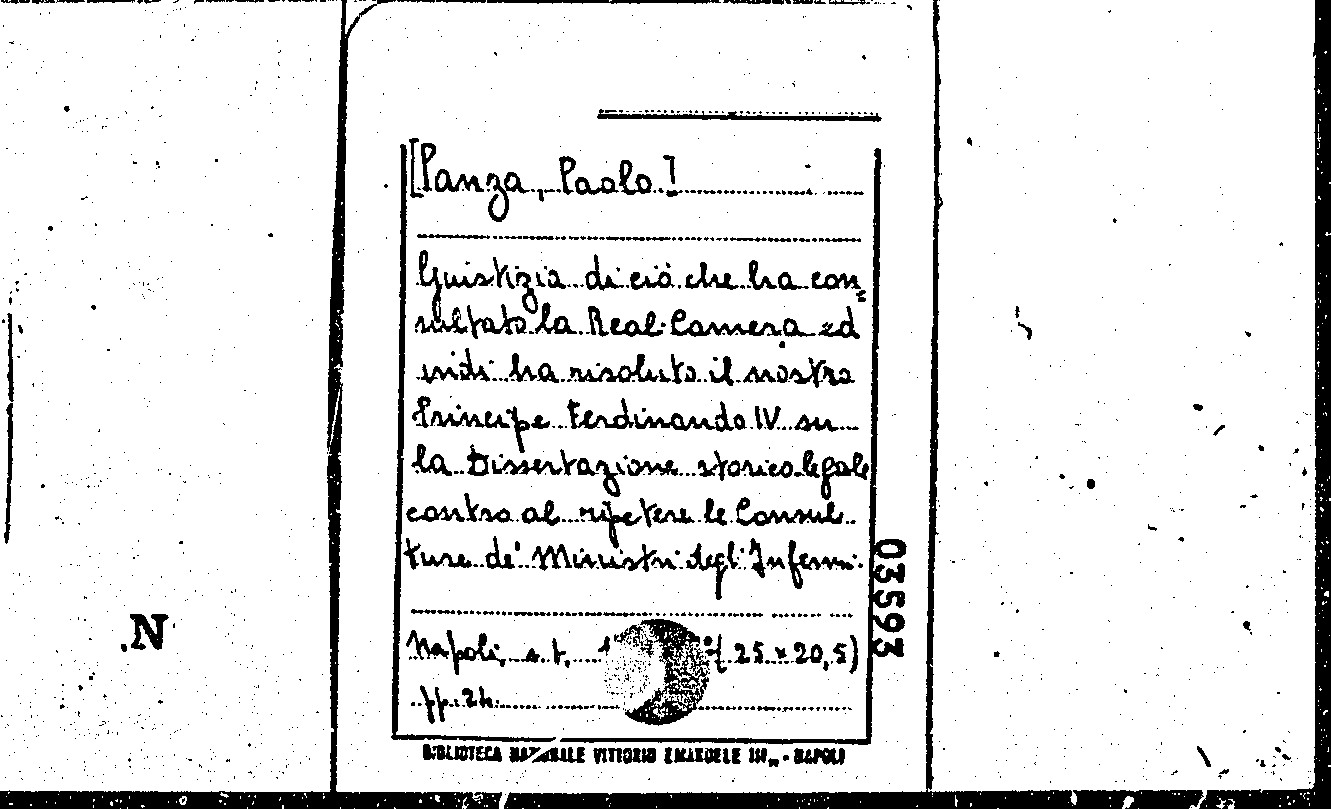 [Panza, Paolo]
Giustizia di ciò che ha con=
sultato la Real Camera ed
indi ha risoluto il nostro
Principe Ferdinando IV su
la Dissertazione storico legale
contro al ripetere le Consul
ture de' Ministri degl' Infermi.
Napoli, s. t. (25 x 20,5)
pp. 24.
BIBLIOTECA NAZIONALE VITTORIO EMANUELE III„ - NAPOLI
03593
N.